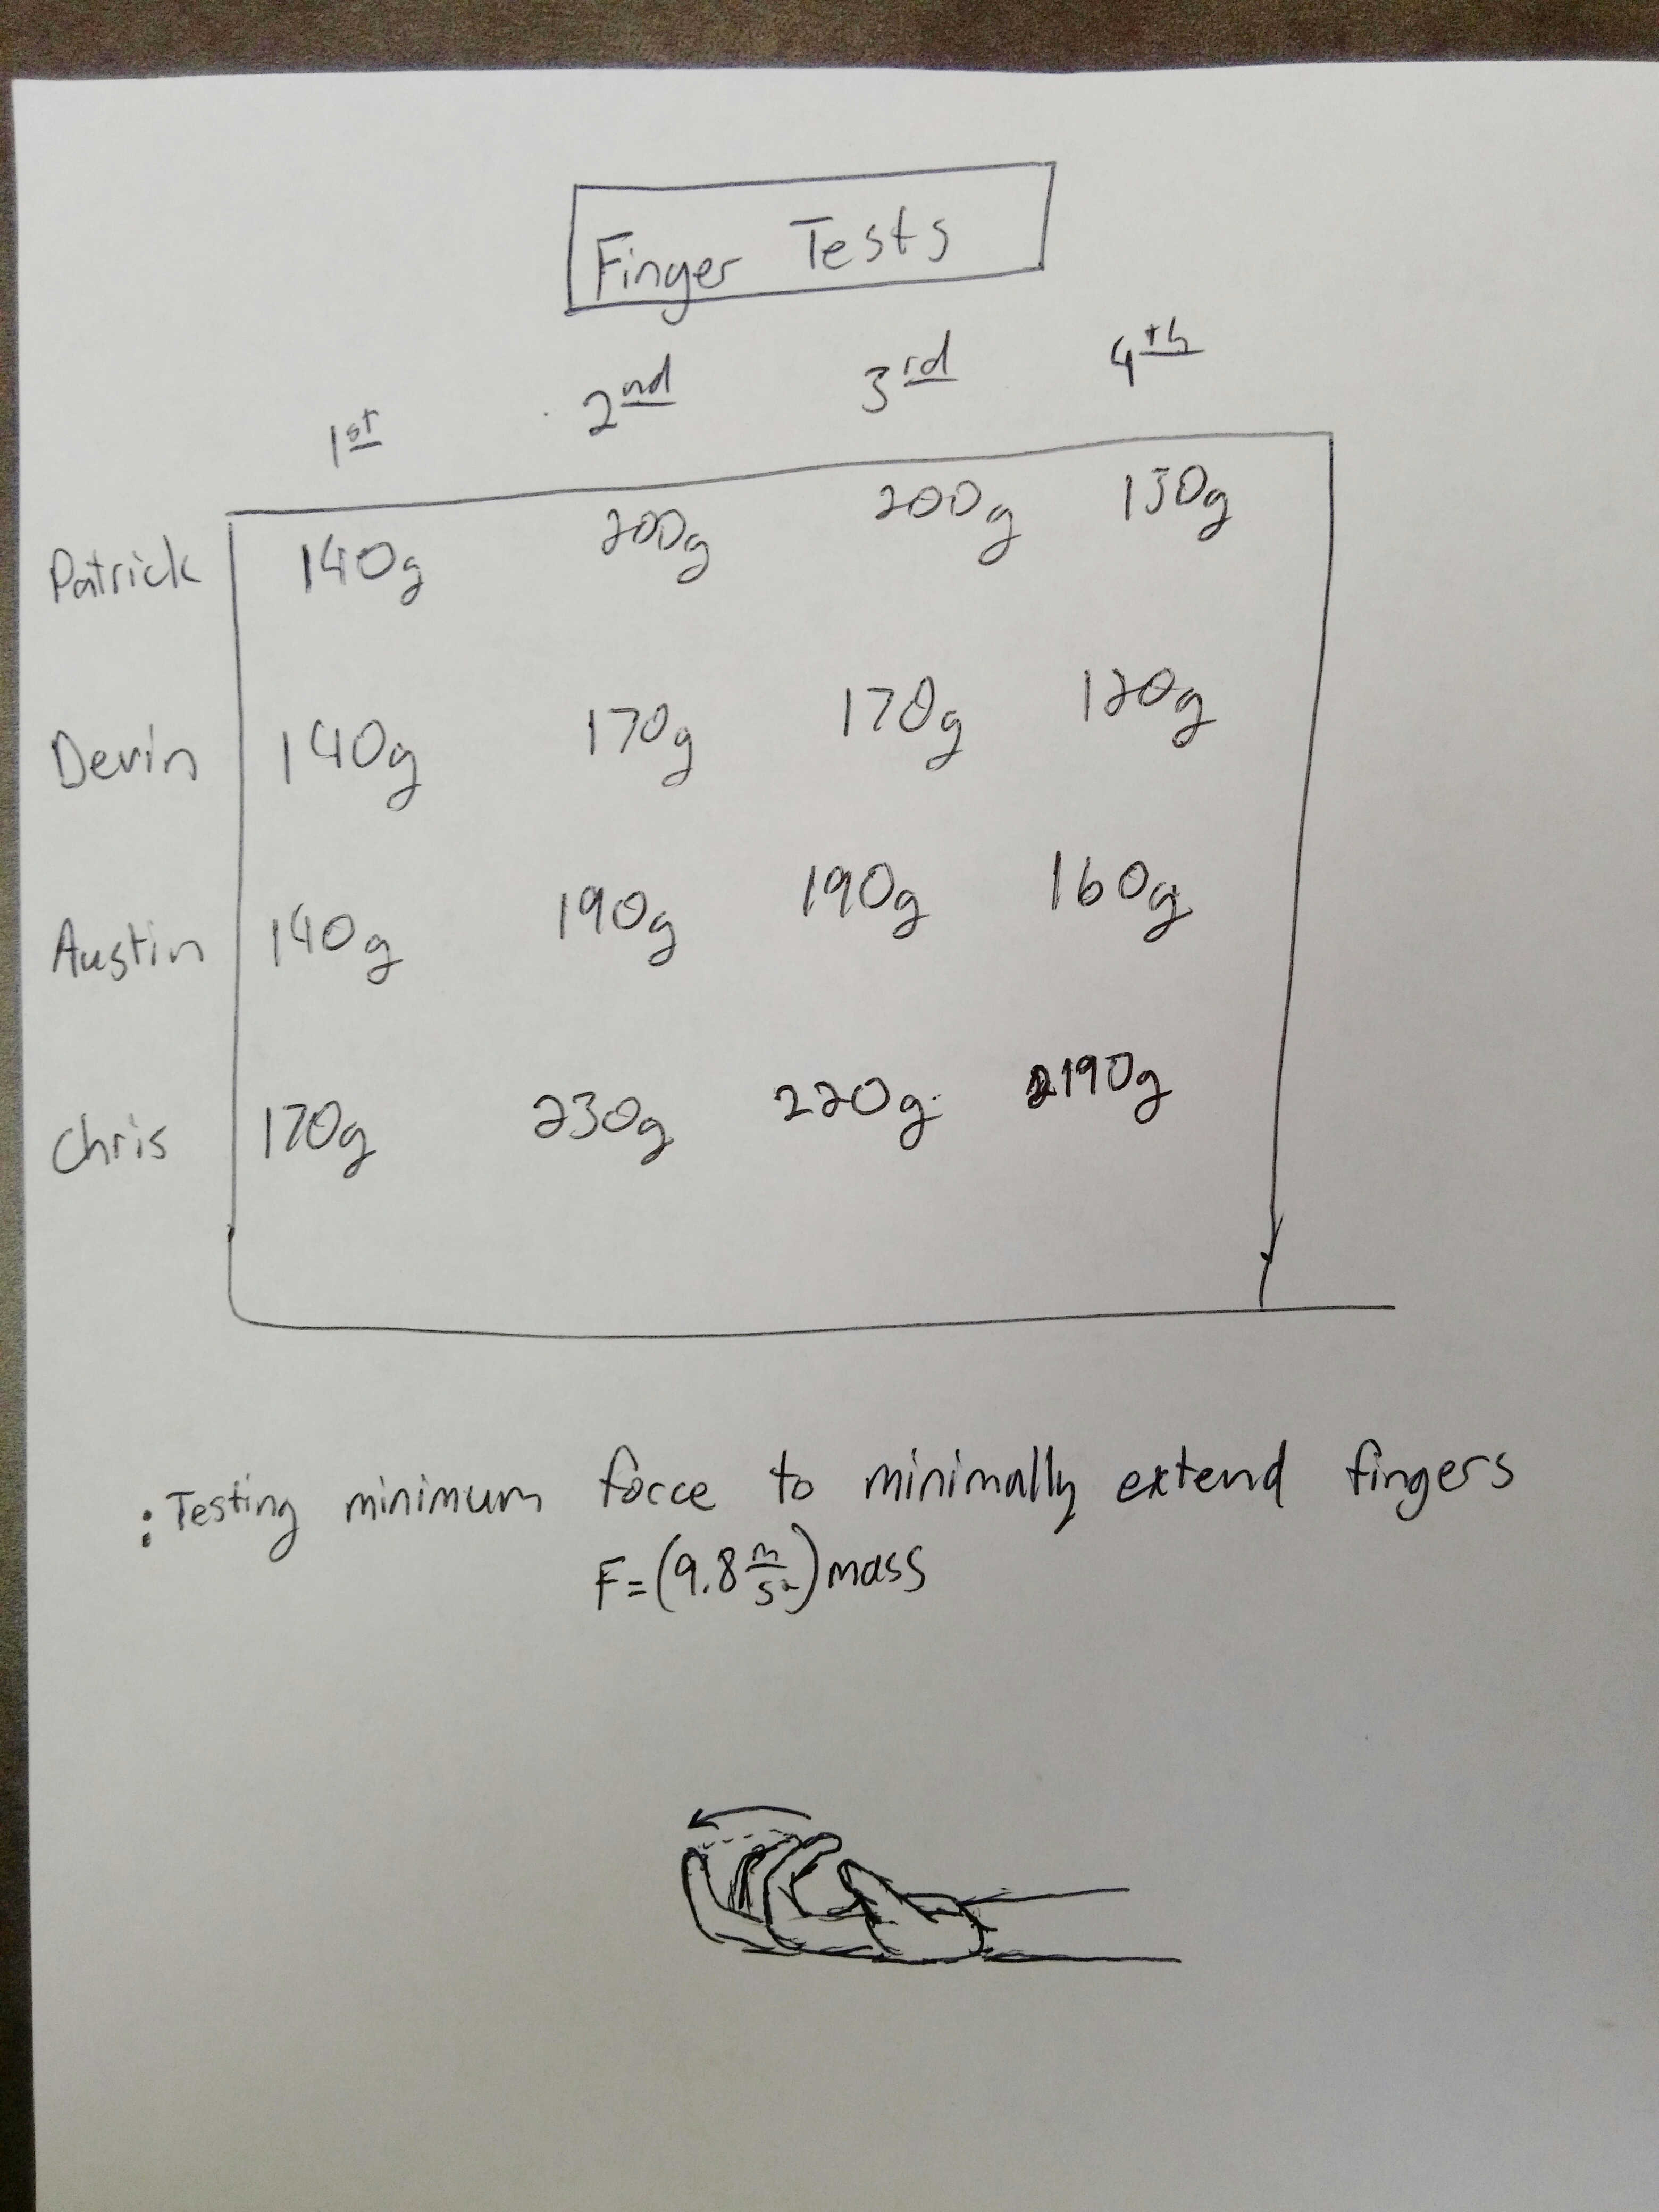 Finger Tests
1st 2nd 3rd 4th
Patrick 140g 200g 200g 130g
Devin 140g 170g 170g 120g
Austin 140g 190g 190g 160g
Chris 170g 230g 220g 190g
: Testing minimum force to minimally extend fingers
F=(9.8 m/s²) mass